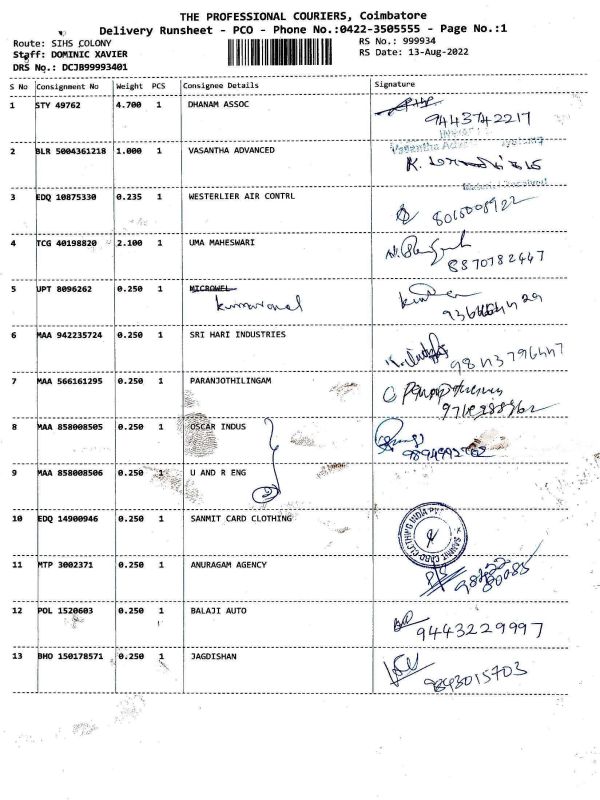 THE PROFESSIONAL COURIERS, Coimbatore
Delivery Runsheet - PCO - Phone No.:0422-3505555 - Page No.:1
Route: SIHS COLONY RS No.: 999934
Staff: DOMINIC XAVIER RS Date: 13-Aug-2022
DRS No.: DCJB99993401
S No Consignment No Weight PCS Consignee Details Signature
1 STY 49762 4.700 1 DHANAM ASSOC
9443742217
2 BLR 5004361218 1.000 1 VASANTHA ADVANCED
3 EDQ 10875330 0.235 1 WESTERLIER AIR CONTRL
8015008922
4 TCG 40198820 2.100 1 UMA MAHESWARI
8870782447
5 UPT 8096262 0.250 1 MICROWEL
6 MAA 942235724 0.250 1 SRI HARI INDUSTRIES
9843796447
7 MAA 566161295 0.250 1 PARANJOTHILINGAM
8 MAA 858008505 0.250 1 OSCAR INDUS
9 MAA 858008506 0.250 1 U AND R ENG
2
10 EDQ 14900946 0.250 1 SANMIT CARD CLOTHING
SANMIT CARD CLOTHING INDIA PV
11 MTP 3002371 0.250 1 ANURAGAM AGENCY
12 POL 1520603 0.250 1 BALAJI AUTO
9443229997
13 BHO 150178571 0.250 1 JAGDISHAN
9843015703